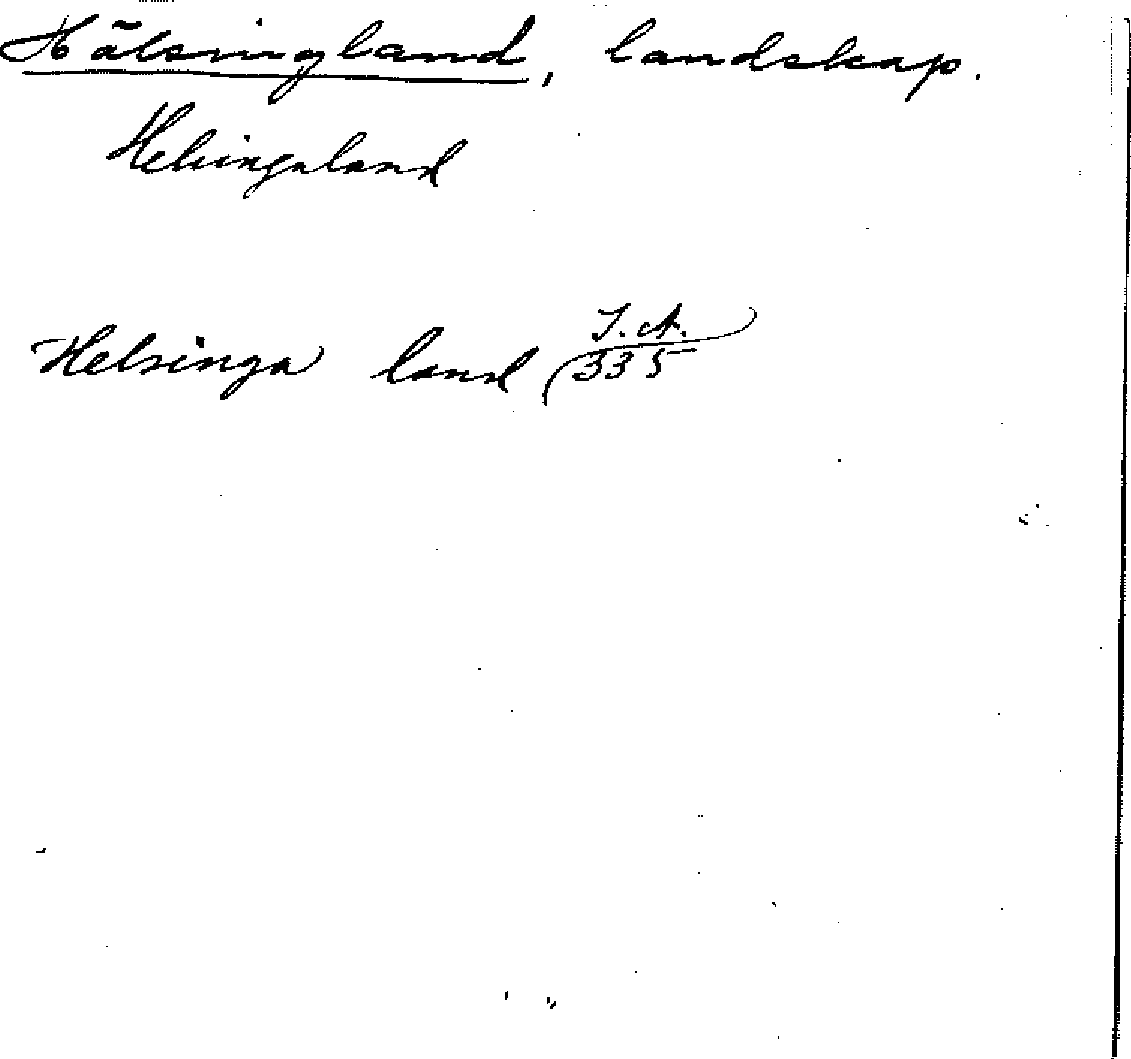 Hälsingland, landskap.
Helsingaland
Helsinga land (J. A. 335